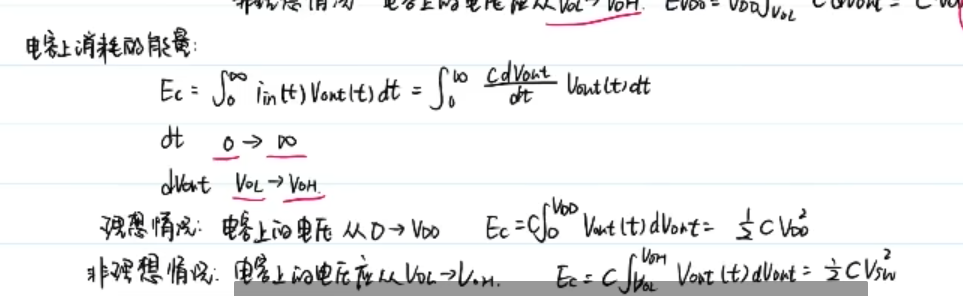 非理想情况 电容上的电压应从VOL→VOH. EVDD = VDD∫VOL C dVout = C
电容上消耗的能量:
Ec = ∫₀^∞ iin(t) Vout(t) dt = ∫₀^∞ CdVout/dt Vout(t) dt
dt 0 → ∞
dVout VOL → VOH.
理想情况: 电容上的电压 从0→VDD Ec = C∫₀^VDD Vout(t) dVout = ½ C VDD²
非理想情况: 电容上的电压应从VOL→VOH. Ec = C∫VOL^VOH Vout(t) dVout = ½ C Vsw²